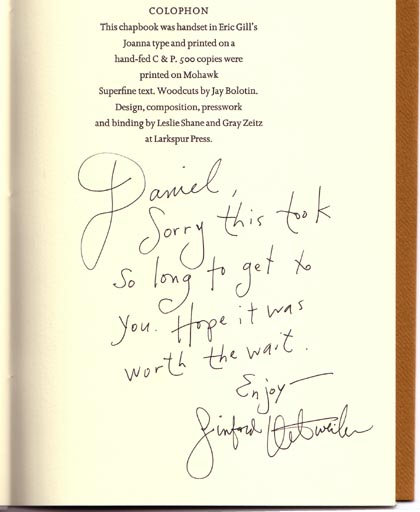 COLOPHON
This chapbook was handset in Eric Gill's
Joanna type and printed on a
hand-fed C & P. 500 copies were
printed on Mohawk
Superfine text. Woodcuts by Jay Bolotin.
Design, composition, presswork
and binding by Leslie Shane and Gray Zeitz
at Larkspur Press.
Daniel,
Sorry this took
so long to get to
you. Hope it was
worth the wait.
Enjoy—